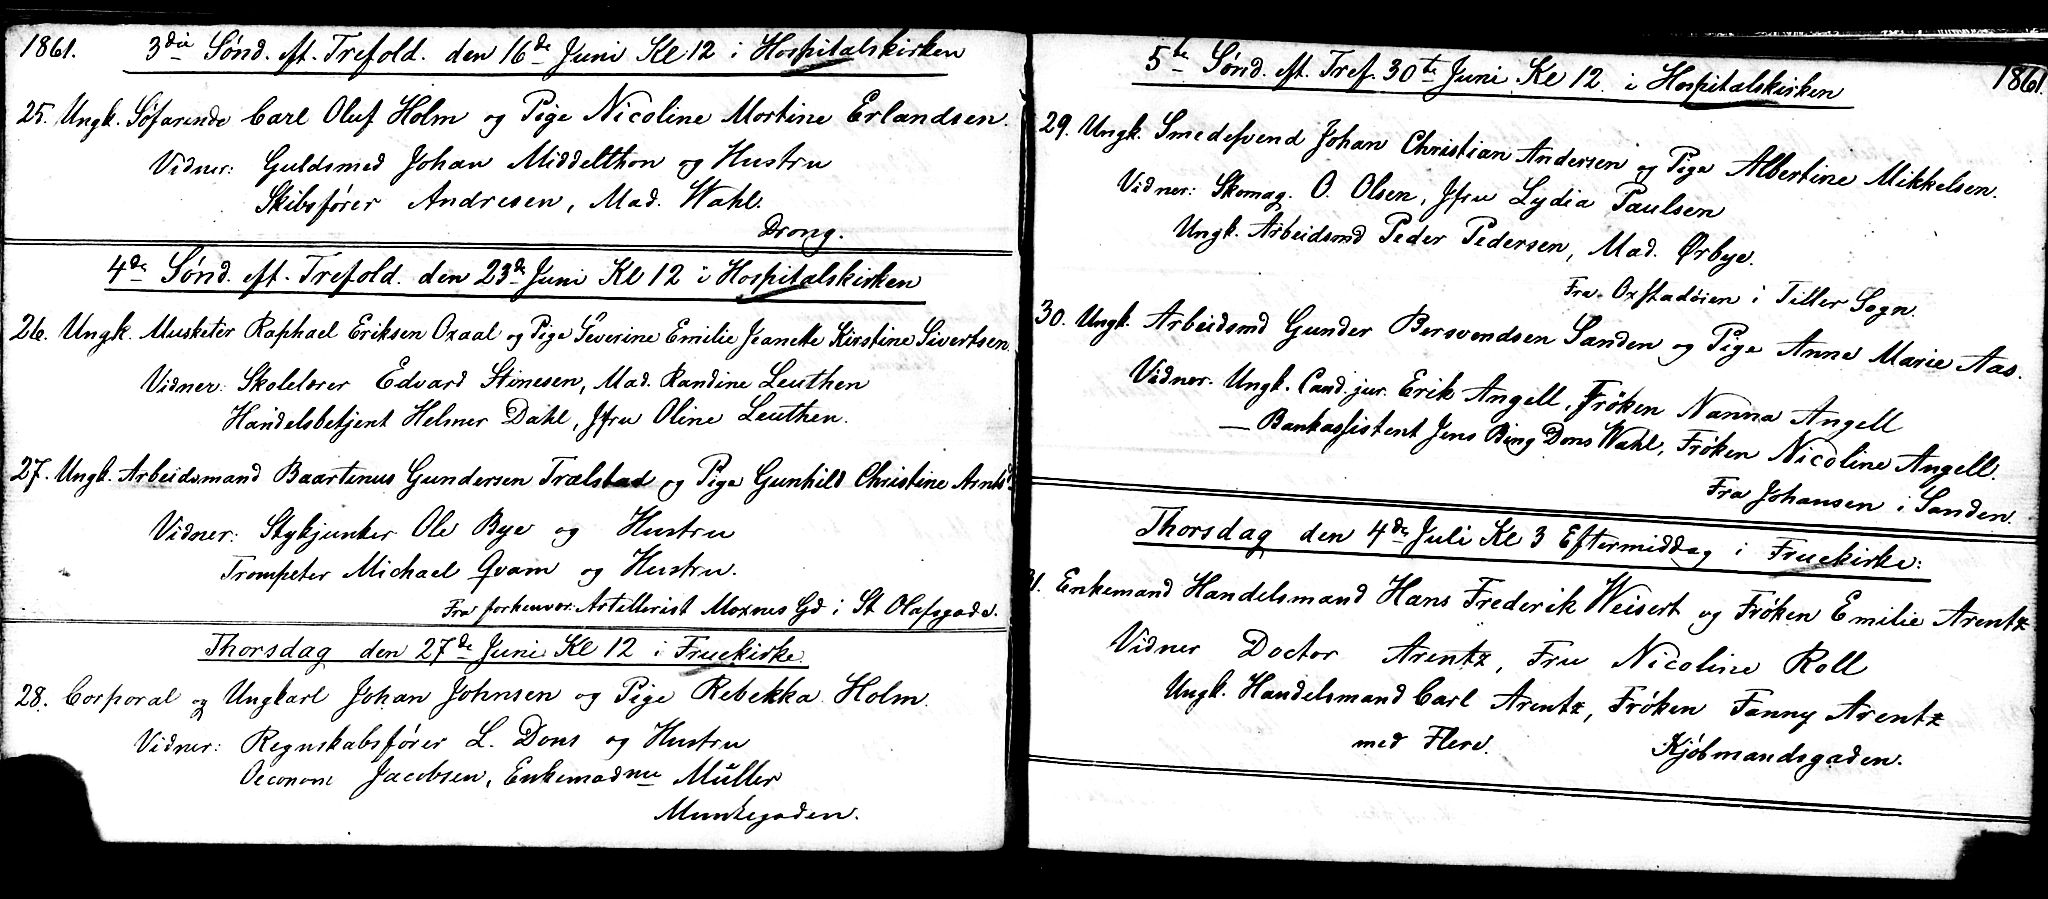 1861. 3die Sønd. eft. Trefold. den 16de Juni Kl 12 i Hospitalskirken
25. Ungk. Søfarende Carl Oluf Holm og Pige Nicoline Mortine Erlandsen.
Vidner: Guldsmed Johan Middelthon og Hustru
Skibsfører Andresen, Mad. Wahl.
Drong.
4de Sønd. eft. Trefold. den 23de Juni Kl 12 i Hospitalskirken
26. Ungk. Musketer Raphael Eriksen Oxaal og Pige Severine Emilie Jeanette Kirstine Sivertsen
Vidner: Skolelærer Edvard Stinesen, Mad. Randine Leuthen
Handelsbetjent Helmer Dahl, Jfru Oline Leuthen.
27. Ungk. Arbeidsmand Baartinus Gundersen Trælstad og Pige Gunhild Christine
Vidner: Stykjunker Ole Bye og Hustru
Trompeter Michael Qvam og Hustru.
Fra forhenvær: Artillerist Moxnes Gd i St Olafsgade.
Thorsdag den 27de Juni Kl 12 i Fruekirke
28. Corporal og Ungkarl Johan Johnsen og Pige Rebekka Holm.
Vidner: Regnskabsfører L. Dons og Hustru
Oeconom Jacobsen, Enkemadme Müller
Munkegaden.
5te Sønd. eft. Tref. 30te Juni Kl 12 i Hospitalskirken 1861.
29. Ungk. Smedesvend Johan Christian Andersen og Pige Albertine Mikkelsen.
Vidner: Skomag. O. Olsen, Jfru Lydia Paulsen
Ungk. Arbeidsmd Peder Pedersen, Mad. Ørbye.
Fra Oxstadøien i Tiller Sogn.
30. Ungk. Arbeidsmd Gunder Bersvendsen Sanden og Pige Anne Marie Aas.
Vidner. Ungk. Cand. jur. Erik Angell, Frøken Nanna Angell
— Bankassistent Jens Bing Dons Wahl, Frøken Nicoline Angell.
Fra Johansen i Sanden.
Thorsdag den 4de Juli Kl 3 Eftermiddag i Fruekirke:
31. Enkemand Handelsmand Hans Frederik Weisert og Frøken Emilie Arentz
Vidner Doctor Arentz, Fru Nicoline Roll
Ungk. Handelsmand Carl Arentz, Frøken Fanny Arentz
med Flere. Kjøbmandsgaden.